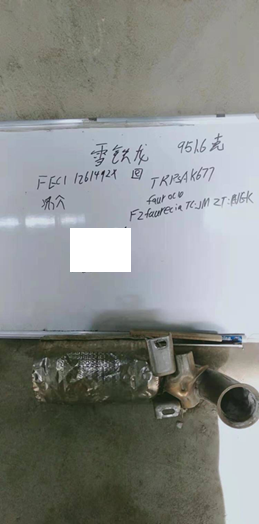 雪铁龙 951.6克
FEC1 1261492X 圆 TRPSAK677
faurecia
F2 faurecia TCJM ZT:NGK